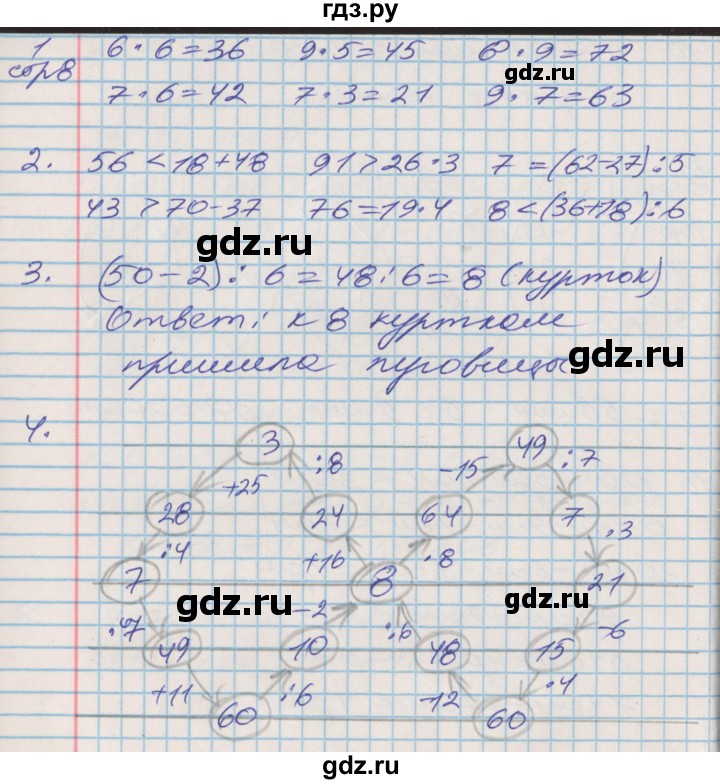 гдз.ру
1 6·6=36 9·5=45 8·9=72
стр8 7·6=42 7·3=21 9·7=63
gdz.ru
2. 56<18+48 91>26·3 7=(62-27):5
43>70-37 76=19·4 8<(36+18):6
gdz.ru
3. (50-2):6=48:6=8 (курток)
Ответ: к 8 курткам
пришила пуговицы
gdz.ru
4.
3 49
:8 -15 :7
+25
28 24 64 7
:4 +16 ·8 ·3
7 8 21
gdz.ru gdz.ru
·7 -2 :6 -6
49 10 48 15
+11 :6 -12 ·4
60 60
gdz.ru